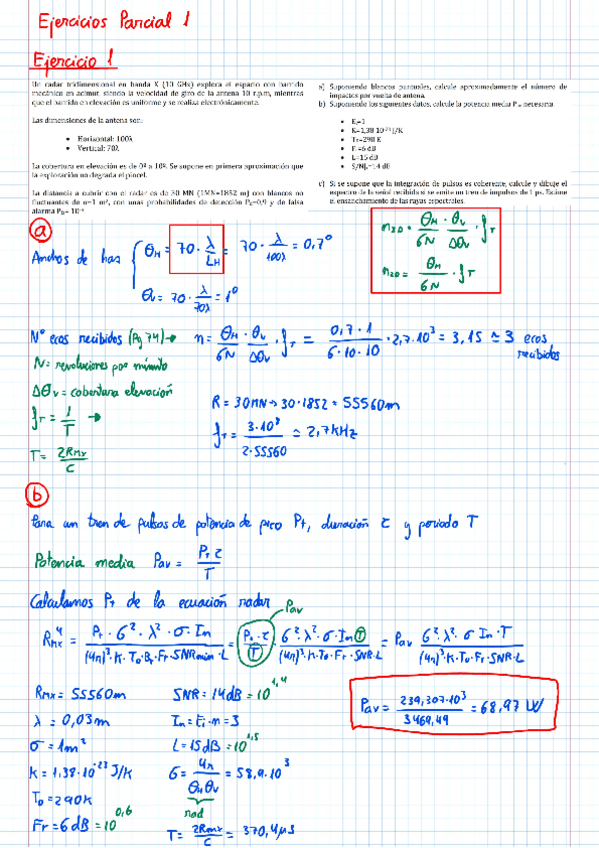 Ejercicios Parcial 1
Ejercicio 1
Un radar tridimensional en banda X (10 GHz) explora el espacio con barrido
mecánico en acimut, siendo la velocidad de giro de la antena 10 r.p.m, mientras
que el barrido en elevación es uniforme y se realiza electrónicamente.
Las dimensiones de la antena son:
• Horizontal: 100λ
• Vertical: 70λ
La cobertura en elevación es de 0º a 10º. Se supone en primera aproximación que
la exploración no degrada el pincel.
La distancia a cubrir con el radar es de 30 MN (1MN=1852 m) con blancos no
fluctuantes de σ=1 m², con unas probabilidades de detección Pd=0,9 y de falsa
alarma
a) Suponiendo blancos puntuales, calcule aproximadamente el número de
impactos por vuelta de antena.
b) Suponiendo los siguientes datos, calcule la potencia media necesaria
• Ei=1
• K=1,38 10⁻²³ J/K
• To=290 K
• F=6 dB
• L=15 dB
• S/N|=14 dB
c) Si se supone que la integración de pulsos es coherente, calcule y dibuje el
espectro de la señal recibida si se emite un tren de impulsos de 1 µs.
el ensanchamiento de las rayas espectrales.
a
Anchos de haz { θH = 70 · λ/LH = 70 · λ/100λ = 0,7°
θv = 70 · λ/70λ = 1°
n3D = θH/6N · θv/Δθv · fT
n2D = θH/6N · fT
Nº ecos recibidos (Pg 74) → n = θH · θv/6N Δθv · fT = 0,7 · 1/6·10·10 · 2,7·10³ = 3,15 ≃ 3 ecos recibidos
N = revoluciones por minuto
Δθv = cobertura elevación
fT = 1/T →
T = 2Rmx/c
R = 30MN → 30·1852 = 55560m
fT = 3·10⁸/2·55560 ≃ 2,7kHz
b
Para un tren de pulsos de potencia de pico Pt, duración τ y periodo T
Potencia media Pav = Pt τ/T
Calculamos Pt de la ecuación radar
Pav
Rmx⁴ = Pt · G² · λ² · σ · In/(4π)³ · K · To · Br · Fr · SNRmin · L = Pt · τ/T · G² · λ² · σ · In T/(4π)³ · K · To · Fr · SNR · L = Pav G² · λ² · σ In · T/(4π)³ · K · To · Fr · SNR · L
Rmx = 55560m
λ = 0,03m
σ = 1m²
K = 1,38·10⁻²³ J/K
To = 290K
Fr = 6dB = 10^0,6
SNR = 14dB = 10^1,4
In = Ei · n = 3
L = 15dB = 10^1,5
G = 4π/θH θv = 58,9·10³
rad
T = 2Rmx/c = 370,4µs
Pav = 239,307·10³/3469,49 = 68,97 W